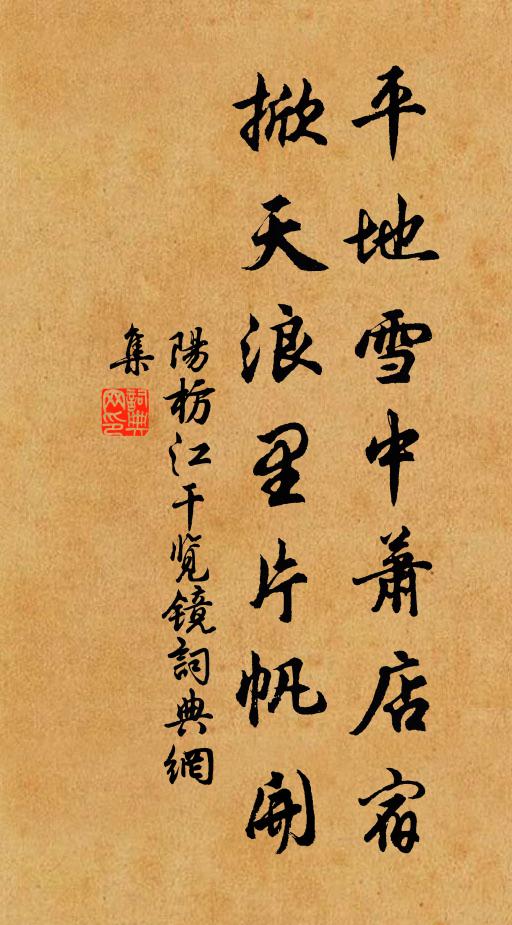 平地雪中蕭店宿
掀天浪里片帆開
陽枋江干覽鏡詞典網
集
詞典網印